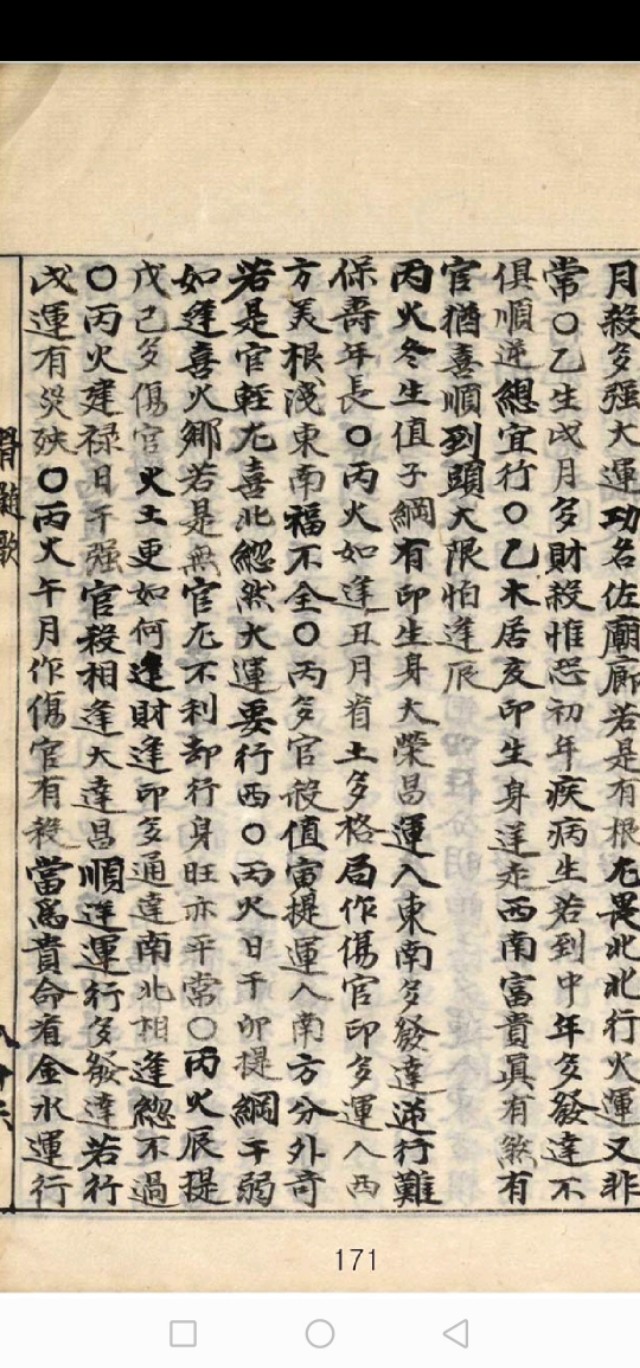 月殺多强大運功名佐廟廊若是有根尢畏北北行火運又非
常〇乙生戌月多財殺惟恐初年疾病生若到中年多發達不
俱順逆總宜行〇乙木居亥印生身運走西南富貴眞有煞有
官猶喜順到頭大限怕逢辰
丙火冬生值子綱有印生身大榮昌運入東南多發達逆行難
保壽年長〇丙火如逢丑月省土多格局作傷官印多運入西
方美根浅東南福不全〇丙多官殺值寅提運入南方分外奇
若是官輕尢喜北縂然大運要行西〇丙火日干卯提綱干弱
如逢喜火鄉若是無官尢不利却行身旺亦平常〇丙火辰提
戊己多傷官火土更如何逢財逢印多通達南北相逢總不過
〇丙火建禄日干强官殺相逢大達昌順逆運行多發達若行
戌運有災殃〇丙火午月作傷官有殺當爲貴命看金水運行
骨髓歌
171